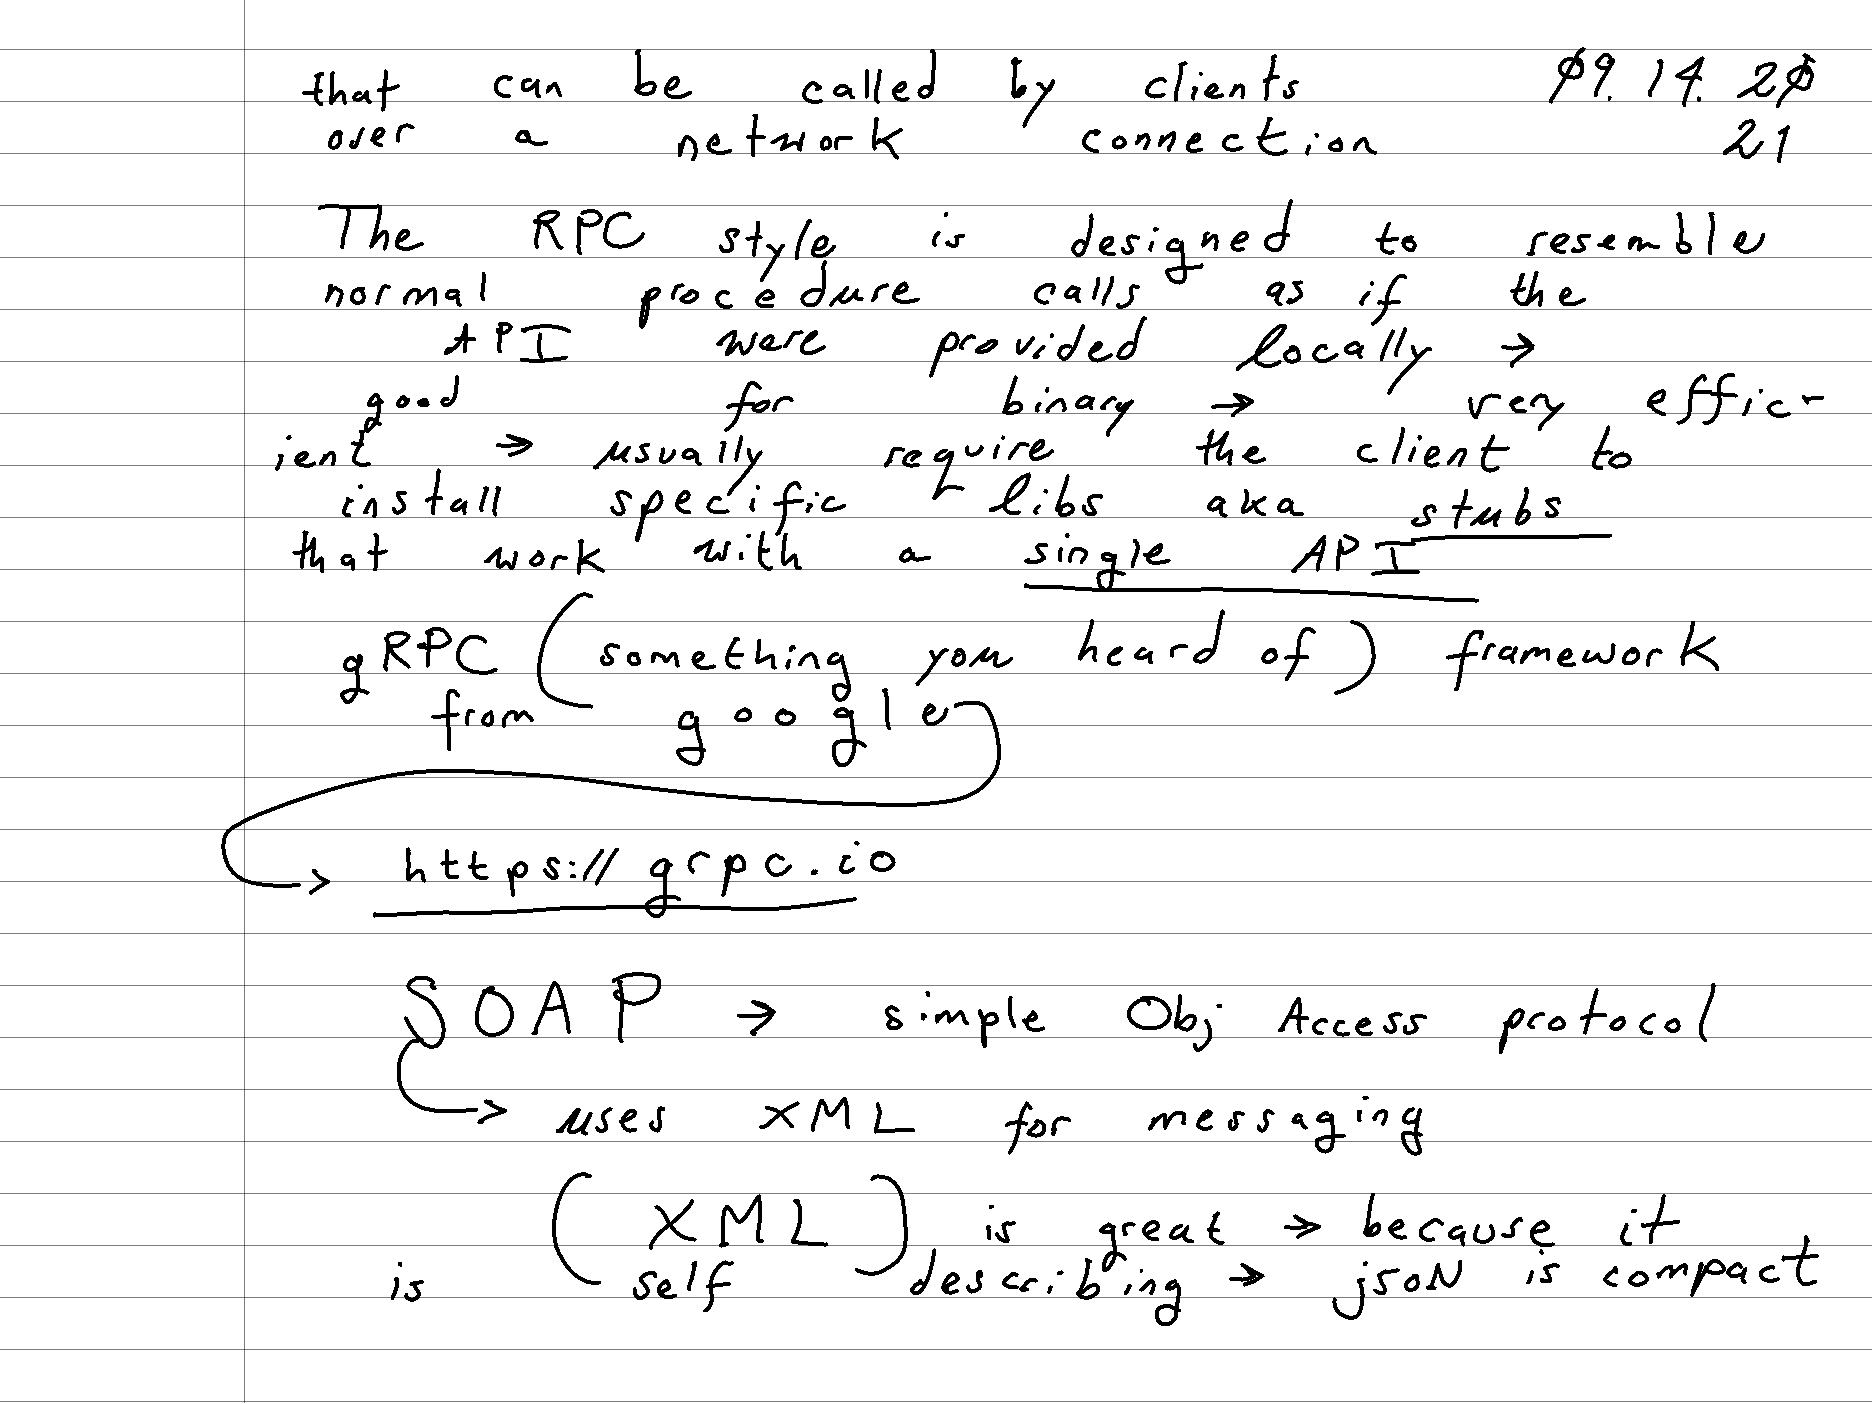 that can be called by clients 09. 14. 20
over a network connection 21
The RPC style is designed to resemble
normal procedure calls as if the
API were provided locally →
good for binary → very effic-
ient → usually require the client to
install specific libs aka stubs
that work with a single API
gRPC (something you heard of) framework
from google
https://grpc.io
SOAP → simple Obj Access protocol
uses XML for messaging
(XML) is great → because it
is self describing → jsoN is compact